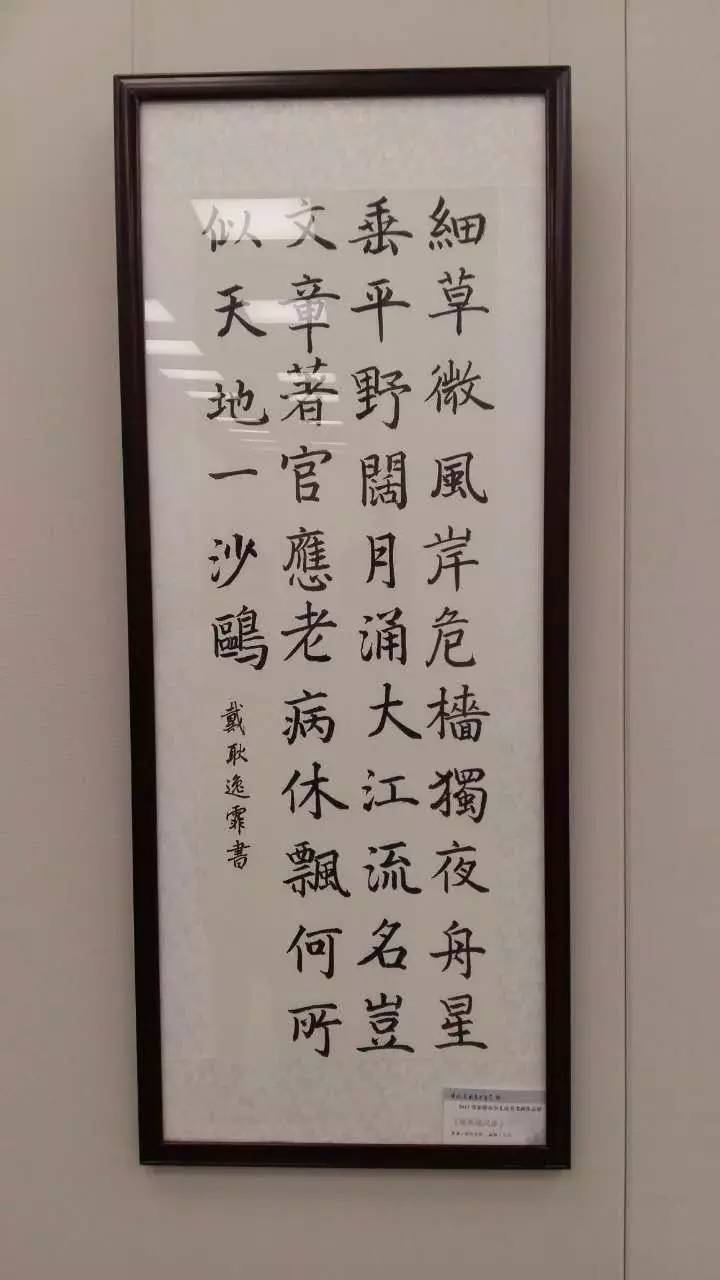 細草微風岸危檣獨夜舟星
垂平野闊月涌大江流名豈
文章著官應老病休飄何所
似天地一沙鷗
戴耿逸霏書